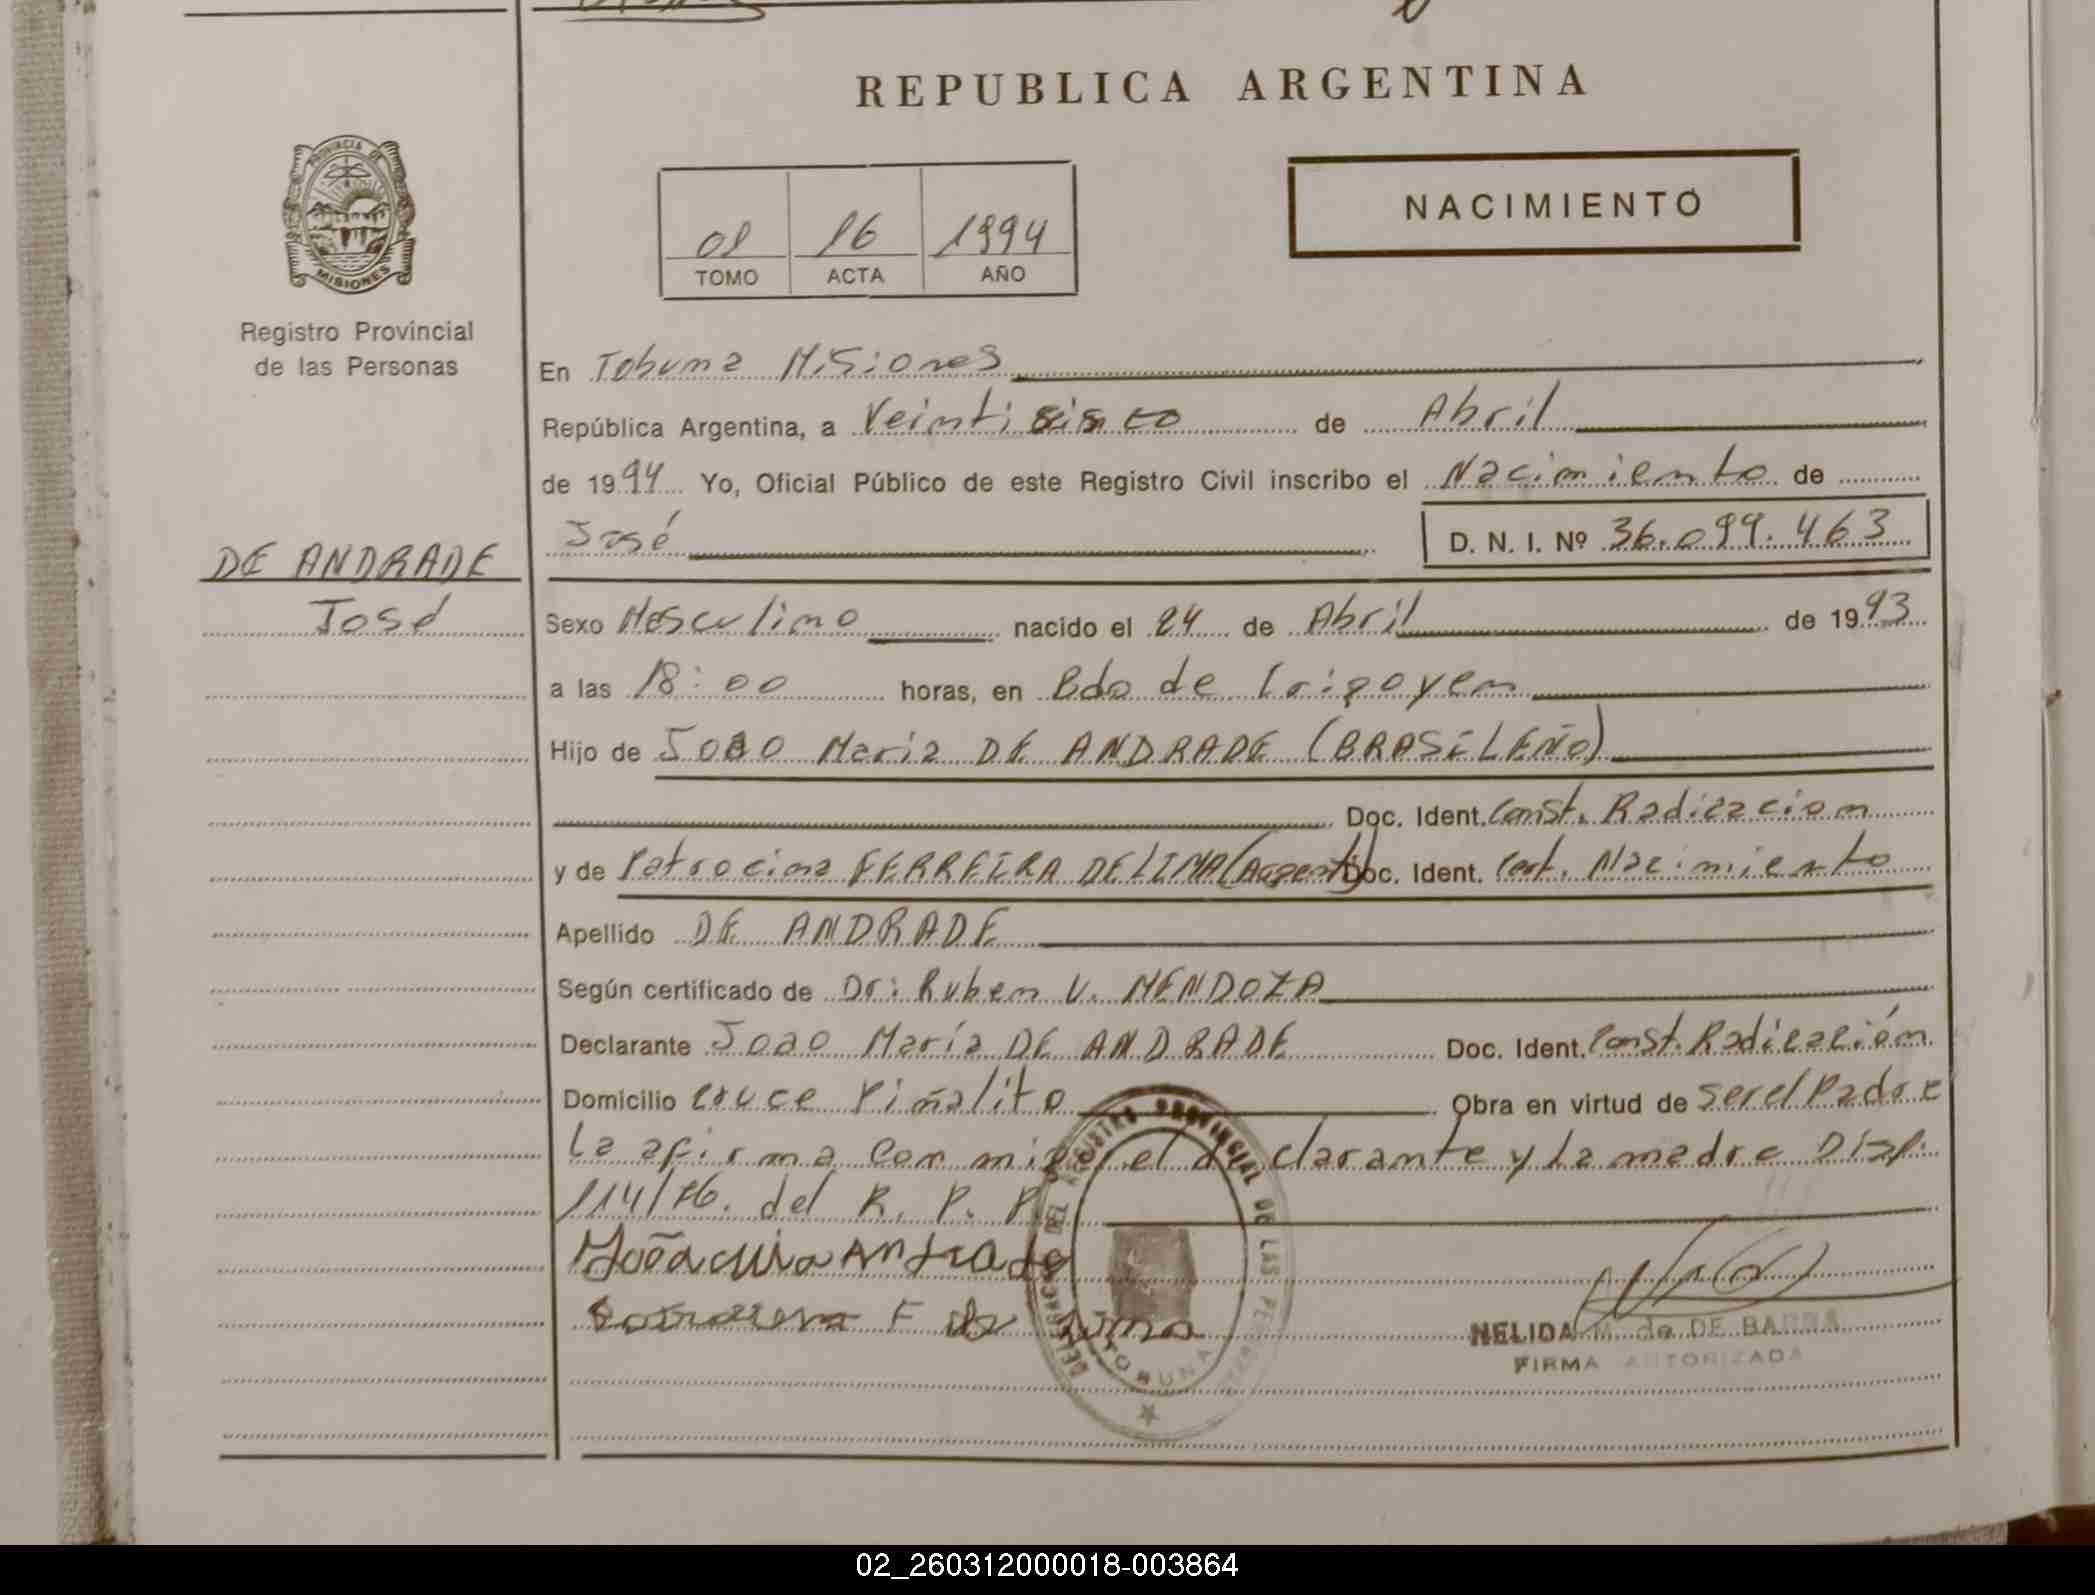 REPUBLICA ARGENTINA
PROVINCIA DE
MISIONES
Registro Provincial
de las Personas
01 16 1994
TOMO ACTA AÑO
NACIMIENTO
En Tobuna Misiones
República Argentina, a Veinti sinco de Abril
de 1994 Yo, Oficial Público de este Registro Civil inscribo el Nacimiento de
José D. N. I. Nº 36.099.463
DE ANDRADE
José
Sexo Masculino nacido el 24 de Abril de 1993
a las 18:00 horas, en Bdo de Irigoyen
Hijo de Joao Maria DE ANDRADE (BRASILEÑO)
Doc. Ident. Const. Radicacion
y de Patrocina FERREIRA DE LIMA (Argent) Doc. Ident. Cert. Nacimiento
Apellido DE ANDRADE
Según certificado de Dr: Ruben V. MENDOZA
Declarante Joao María DE ANDRADE Doc. Ident. Const. Radicación
Domicilio Cruce Piñalito Obra en virtud de ser el Padre
La afirma con migo el declarante y La madre Disp.
114/76. del R. P. P.
F de Lima
DEL REGISTRO PROVINCIAL DE LAS
TOBUNA
NELIDA M. de DE BARRA
FIRMA AUTORIZADA
02_260312000018-003864